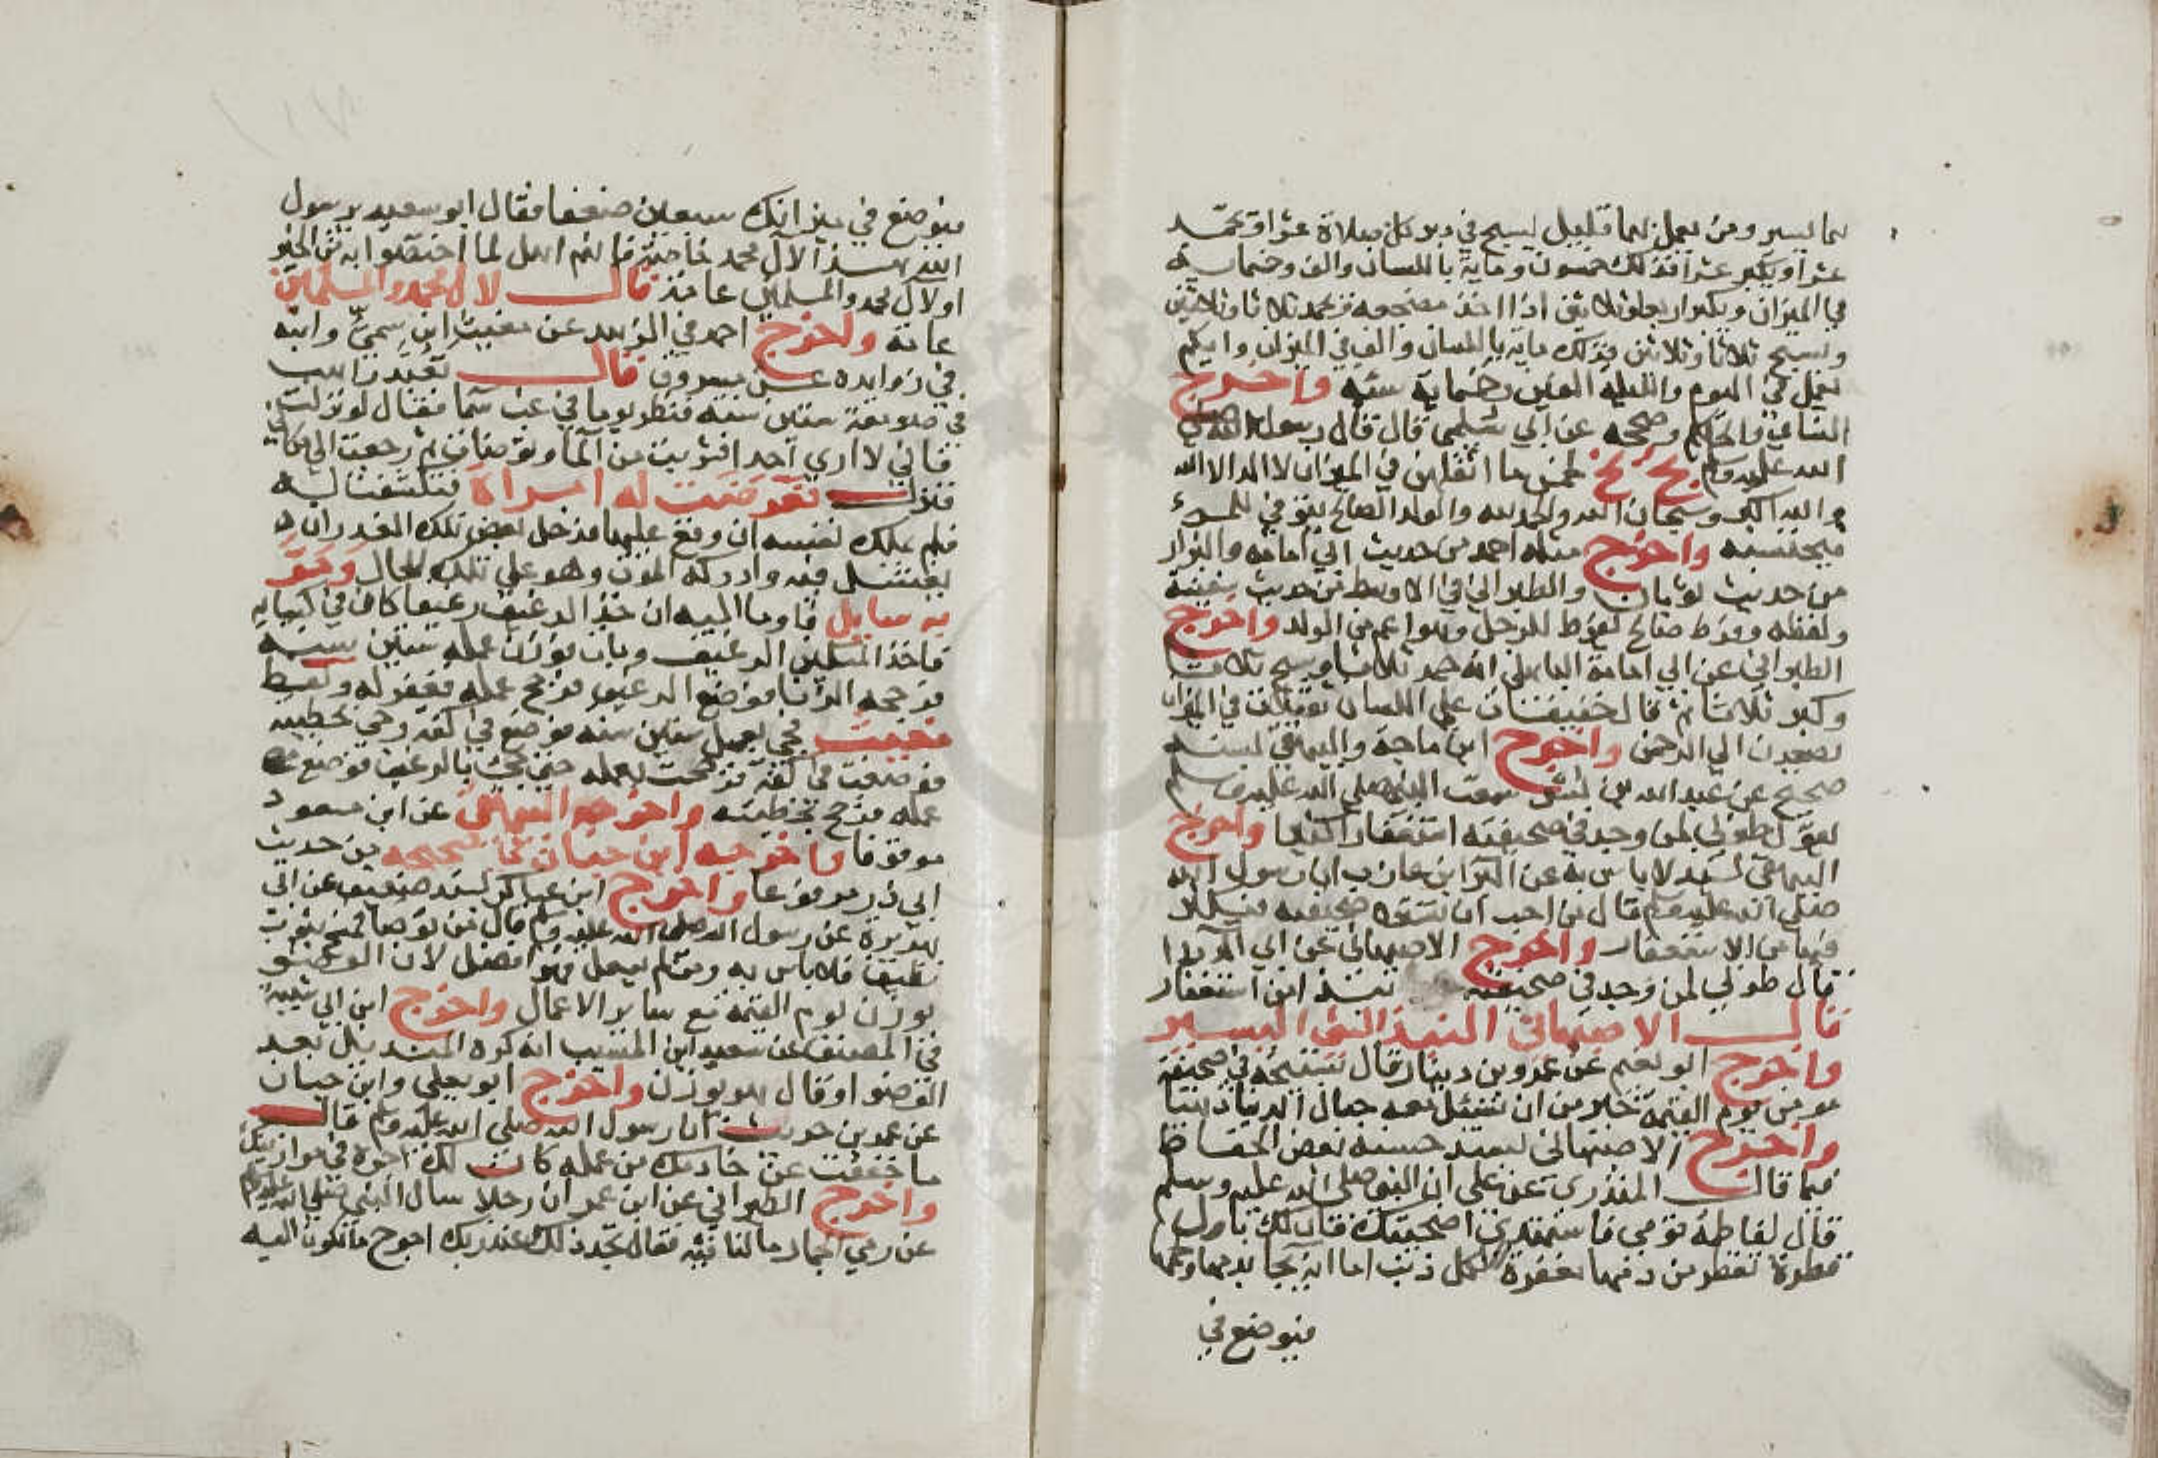 بما يسير ومن يعمل بهما قليل يسبح في دبر كل صلاة عشرا ويحمد
عشرا ويكبر عشرا فذلك خمسون وماية باللسان والف وخمسماية
في الميزان ويكبر اربعا وثلاثين اذا اخذ مضجعه ويحمد ثلاثا وثلاثين
ويسبح ثلاثا وثلاثين فذلك ماية باللسان والف في الميزان وايكم
يعمل في اليوم والليلة الفين وخمسماية سيئة واخرج
النساي والحاكم وصححه عن ابي سلمى قال قال رسول الله صلى
الله عليه وسلم بخ بخ لخمس ما اثقلهن في الميزان لا اله الا الله
والله اكبر وسبحان الله والحمد لله والولد الصالح يتوفى للمرء
فيحتسبه واخرج مثله احمد من حديث ابي امامة والبزار
من حديث ثوبان والطبراني في الاوسط من حديث سفينة
ولفظه وفرط صالح لفرط للرجل وهو اعم من الولد واخرج
الطبراني عن ابي امامة الباهلي انه حمد ثلاثا وسبح ثلاثا
وكبر ثلاثا ثم قال خفيفتان على اللسان ثقيلتان في الميزان
تصعدن الى الرحمن واخرج ابن ماجة والبيهقي بسند
صحيح عن عبد الله بن بشر سمعت النبي صلى الله عليه وسلم
يقول طوبى لمن وجد في صحيفته استغفارا كثيرا واخرج
البيهقي بسند لا باس به عن البرا بن عازب ان رسول الله
صلى الله عليه وسلم قال من احب ان تسره صحيفته فليكثر
فيها من الاستغفار واخرج الاصبهاني عن ابي الدردا
قال طوبى لمن وجد في صحيفته نبذا من استغفار
قال الاصبهاني النبذ الشي اليسير
واخرج ابو نعيم عن عمرو بن دينار قال تسبيحة في صحيفة
مومن يوم القيمة خير من ان تسيل معه جبال الدنيا ذهبا
واخرج الاصبهاني بسند حسنه بعض الحفاظ
فيما قال المنذري عن علي ان النبي صلى الله عليه وسلم
قال لفاطمة قومي فاشهدي اضحيتك فان لك باول
قطرة تقطر من دمها مغفرة لكل ذنب اما انه يجا بدمها ولحمها
فيوضع في
فيوضع في ميزانك سبعين ضعفا فقال ابو سعيد يرسول
الله هذا لال محمد خاصة فانهم اهل لما اختصوا به من الخير
او لال محمد والمسلمين عامة قال لال محمد والمسلمين
عامة واخرج احمد في الزهد عن مغيث ابن سمي وابنه
في زوايده عن مسروق قال تعبد راهب
في صومعة ستين سنة فنظر يوما في غب سما فقال لو نزلت
فاني لا ارى احدا فشربت من الما وتوضات ثم رجعت الى مكاني
فنزل فتعرضت له امراة فتكشفت له
فلم يملك نفسه ان وقع عليها فدخل بعض تلك الغدران
يغتسل فيه وادركه الموت وهو على تلك الحال ومر
به سايل فاوما اليه ان خذ الرغيف رغيفا كان في كسايه
فاخذ المسكين الرغيف ومات فوزن عمله ستين سنة
فرجحه الزنا فوضع الرغيف فرجح عمله فغفر له ولفظ
مغيث فجي بعمل ستين سنة فوضع في كفة وجي بخطيته
فوضعت في كفة فرجحت بعمله حتى جي بالرغيف فوضع مع
عمله فرجح بخطيته واخرجه البيهقي عن ابن مسعود
موقوفا واخرجه ابن حبان في صحيحه من حديث
ابي ذر مرفوعا واخرج ابن عساكر بسند ضعيف عن ابي
هريرة عن رسول الله صلى الله عليه وسلم قال من توضا فمسح بثوب
نظيف فلا باس به ومن لم يفعل فهو افضل لان الوضو
يوزن يوم القيمة مع ساير الاعمال واخرج ابن ابي شيبة
في المصنف عن سعيد ابن المسيب انه كره المنديل بعد
الوضو وقال هو يوزن واخرج ابو يعلى وابن حبان
عن عمرو بن حريث ان رسول الله صلى الله عليه وسلم قال
ما خففت عن خادمك من عمله كان لك اجره في موازينك
واخرج الطبراني عن ابن عمر ان رجلا سال النبي صلى الله عليه وسلم
عن رمي الجمار ما لنا فيه فقال تجد ذلك عند ربك احوج ما تكون اليه